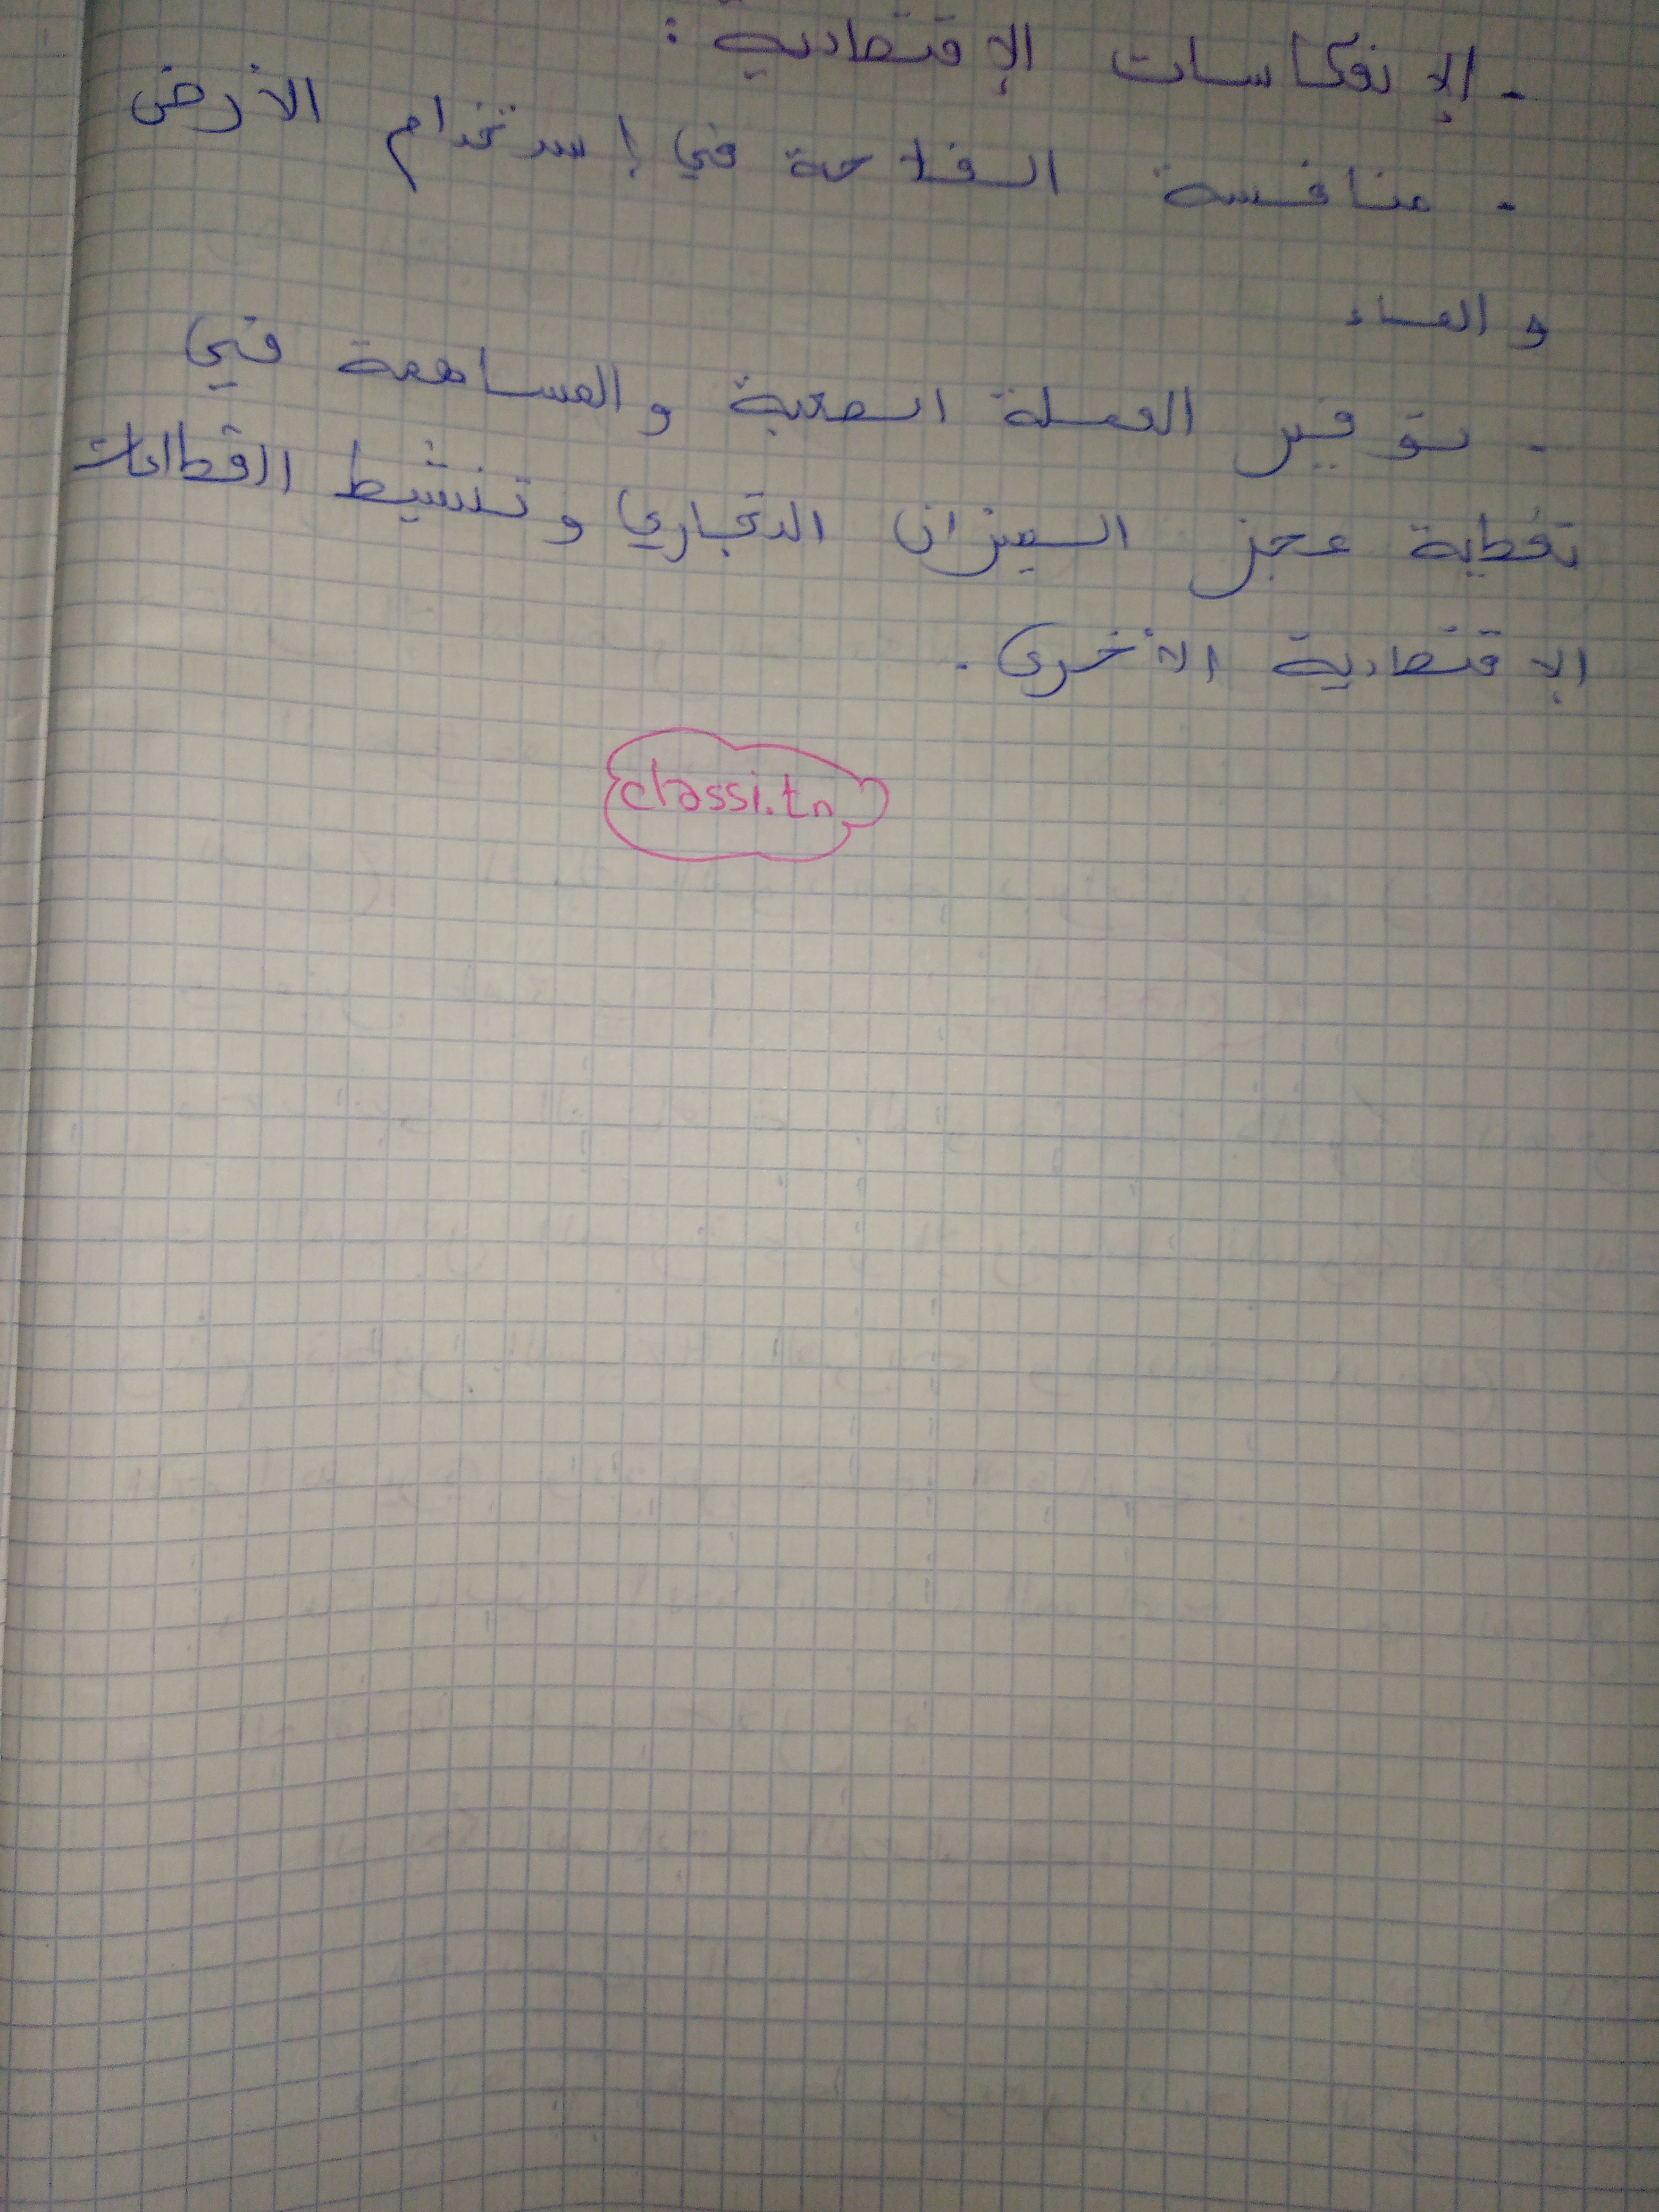 - الإنعكاسات الإقتصادية :
- منافسة الفلاحة في إستخدام الأرض
و الماء
- توفير العملة الصعبة و المساهمة في
تغطية عجز الميزان التجاري و تنشيط القطاعات
الإقتصادية الأخرى .
classi.tn